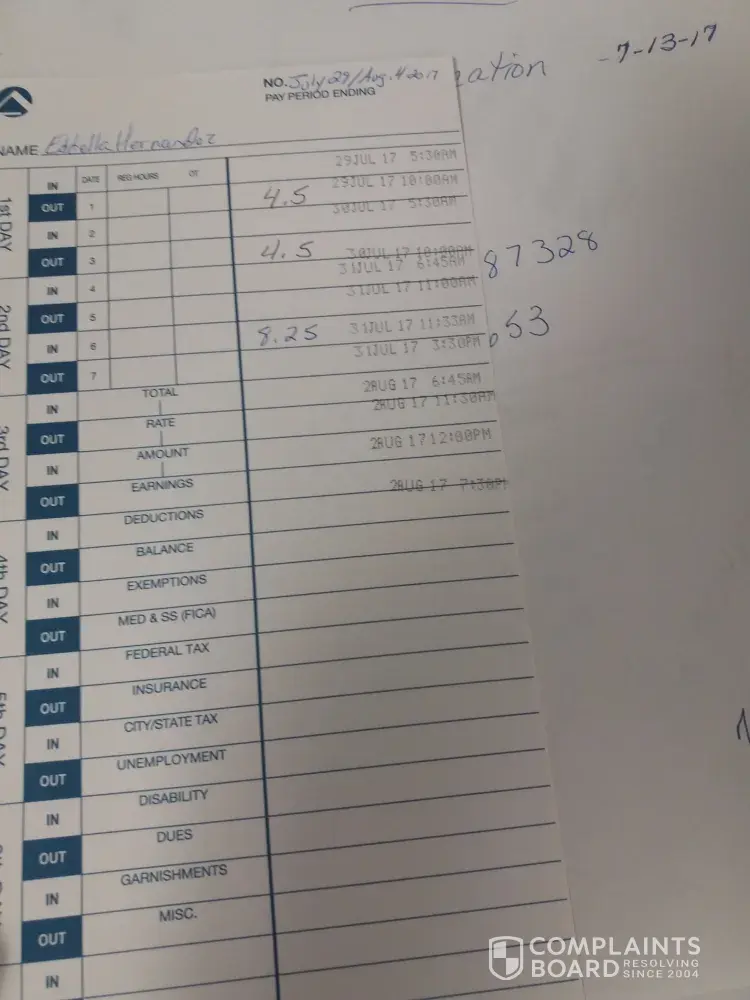 -7-13-17
NO. July 29/Aug. 4 2017
PAY PERIOD ENDING
NAME Estella Hernandez
29JUL 17 5:30AM
IN DATE REG HOURS OT
29JUL 17 10:00AM
OUT 1 4.5
30JUL 17 5:30AM
IN 2
OUT 3 4.5
30JUL 17 10:00AM
31JUL 17 6:45AM
87328
1st DAY
IN 4
31JUL 17 11:00AM
OUT 5
8.25
31JUL 17 11:33AM
.53
IN 6
31JUL 17 3:30PM
2nd DAY
OUT 7
2AUG 17 6:45AM
TOTAL
2AUG 17 11:30AM
IN
RATE
OUT
AMOUNT
2AUG 17 12:00PM
3rd DAY
IN
EARNINGS
2AUG 17 7:30PM
OUT
DEDUCTIONS
IN
BALANCE
OUT
EXEMPTIONS
4th DAY
IN
MED & SS (FICA)
OUT
FEDERAL TAX
IN
INSURANCE
OUT
CITY/STATE TAX
5th DAY
IN
UNEMPLOYMENT
OUT
DISABILITY
IN
DUES
OUT
GARNISHMENTS
IN
MISC.
OUT
IN
COMPLAINTS
BOARD RESOLVING
SINCE 2004